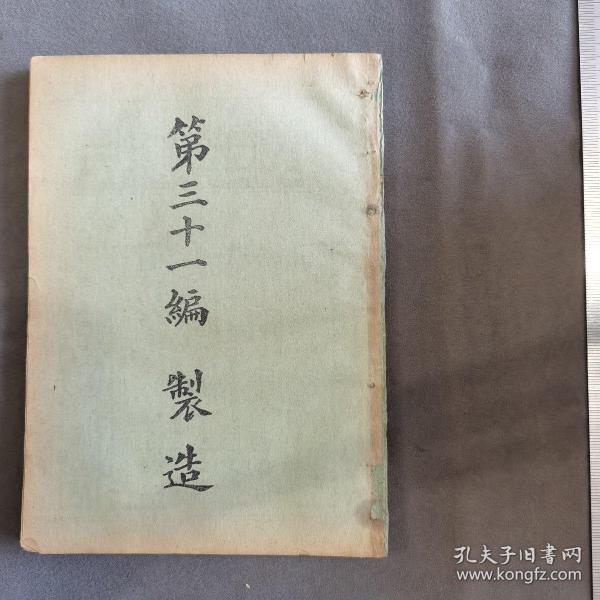 第三十一編 製造
孔夫子旧書网
www.kongfz.com